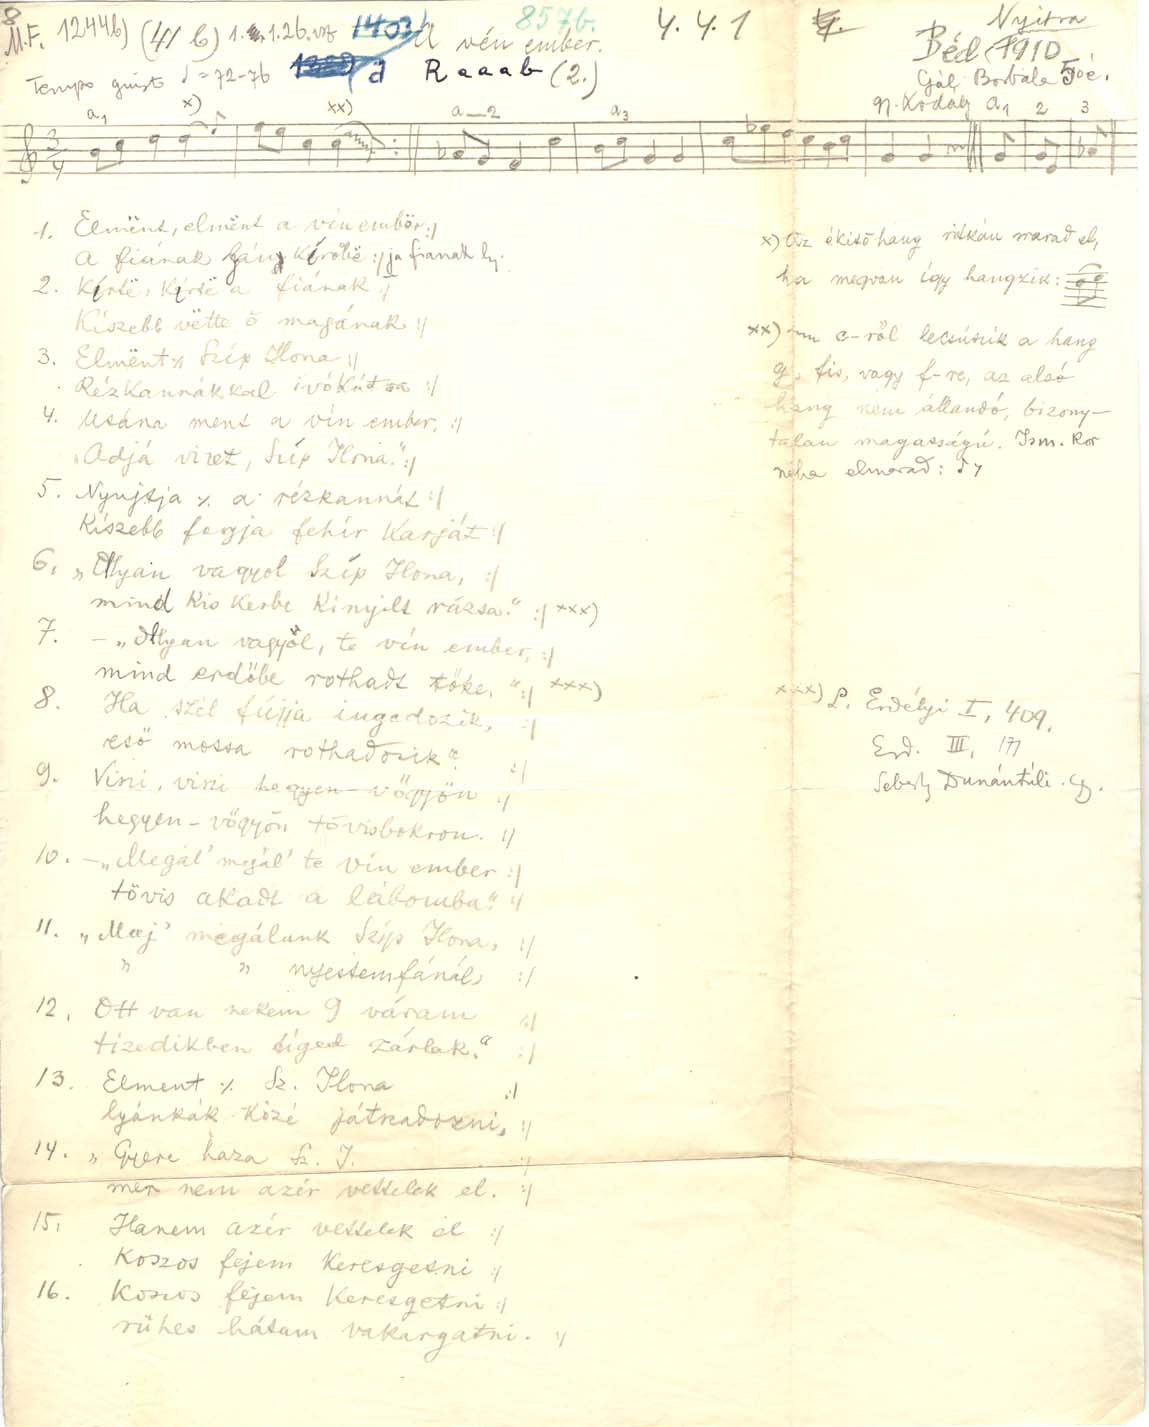 8
M.F. 1244b) (41 b) 1. 1.26. 1403 8576. 4. 4. 1 Nyitra
A vén ember. Béd 1910
Tempo giusto ♩=72-76 d Raaab (2.) Gál Borbála 50é.
gy. Kodály
a₁ x) xx) a—2 a₃ a₁ 2 3
3/4
1. Elmënt, elmënt a vín embör :/
A fiának lyánt kírőbë :/ ja fianak ly.
2. Kírtë, kírtë a fiának :/
Kíszebb vëtte ő magának :/
3. Elmënt ·/. Szíp Ilona :/
Rézkannákkal ivókútra :/
4. Utána ment a vín ember, :/
„Adjá vizet, Szíp Ilona." :/
5. Nyujtja ·/. a rézkannát :/
Kíszebb fogja fehír karját :/
6. „Ollyan vagyol Szíp Ilona, :/
mind kis kerbe kinyilt rózsa." :/ xxx)
7. – „Ollyan vagyől, te vín ember, :/
mind erdőbe rothadt tőke. " :/ xxx)
8. Ha szél fújja ingadozik, :/
eső mossa rothadozik" :/
9. Viszi, viszi hegyen–vőgyön :/
hegyen–vőgyön tövisbokron. :/
10. – „Megál' megál' te vín ember :/
tövis akadt a lábomba." :/
11. „Maj' megálunk Szíp Ilona, :/
" " nyestemfánál, :/
12. Ott van nekem 9 váram :/
tizedikben tíged zárlak." :/
13. Elment ·/. Sz. Ilona :/
lyánkák közé játszadozni, :/
14. „Gyere haza Sz. I.
mer nem azér vettelek el. :/
15. Hanem azér vettelek el :/
Koszos fejem keresgetni :/
16. Koszos fejem keresgetni :/
rühes hátam vakargatni. :/
x) Az ékítőhang ritkán marad el,
ha megvan így hangzik:
xx) c-ről lecsúszik a hang
g, fis, vagy f-re, az alsó
hang nem állandó, bizony-
talan magasságú. Ism. kor
néha elmarad:
xxx) L. Erdélyi I, 409.
Erd. III, 177
Sebesty. Dunántúli gy.